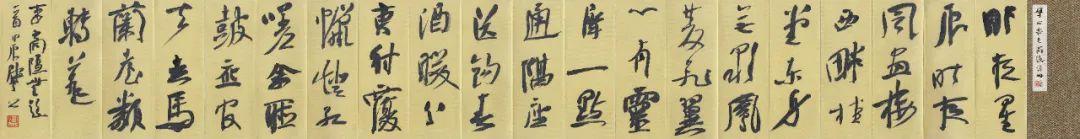 昨夜星
辰昨夜
風畫樓
西畔桂
堂東身
無彩鳳
雙飛翼
心有靈
犀一點
通隔座
送鈎春
酒暖分
曹射覆
蠟燈紅
嗟余聽
鼓應官
去走馬
蘭臺類
轉蓬
李商隱無題